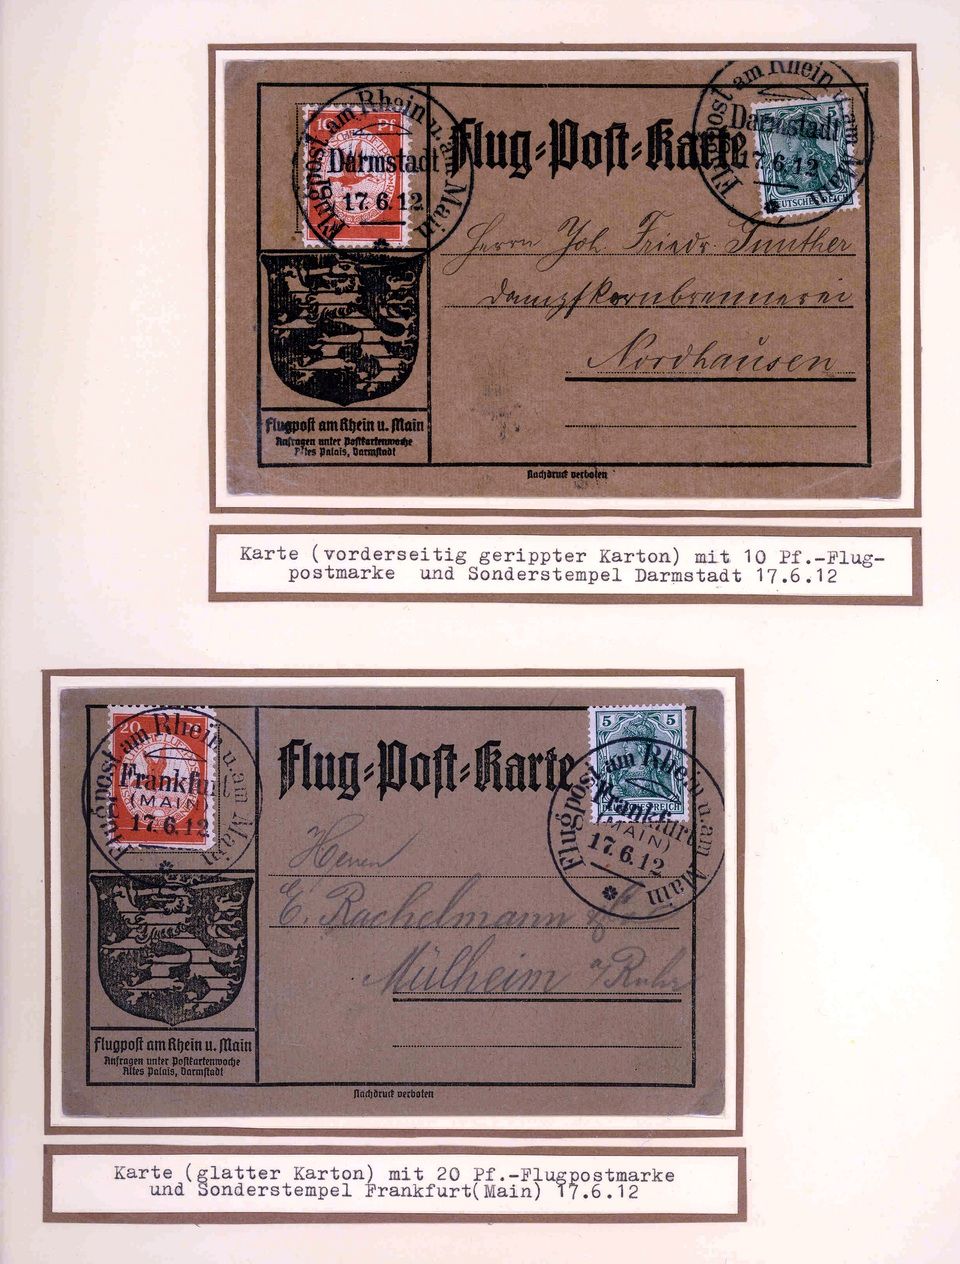 Flugpost am Rhein u. am Main
Darmstadt
17.6.12
10 Pf
Flug-Post-Karte
Flugpost am Rhein u. am Main
Darmstadt
17.6.12
5
DEUTSCHES REICH
Herrn Joh. Friedr. Gunther
Dampfkornbrennerei
Nordhausen
Flugpost am Rhein u. Main
Anfragen unter Postkartenwoche
Altes Palais, Darmstadt
Nachdruck verboten
Karte (vorderseitig gerippter Karton) mit 10 Pf.-Flug-
postmarke und Sonderstempel Darmstadt 17.6.12
Flugpost am Rhein u. am Main
Frankfurt
(MAIN)
17.6.12
20
Flug-Post-Karte
5 5
DEUTSCHES REICH
Flugpost am Rhein u. am Main
Frankfurt
(MAIN)
17.6.12
Herren
E. Rachelmann
Mülheim a/Ruhr
Flugpost am Rhein u. Main
Anfragen unter Postkartenwoche
Altes Palais, Darmstadt
Nachdruck verboten
Karte (glatter Karton) mit 20 Pf.-Flugpostmarke
und Sonderstempel Frankfurt(Main) 17.6.12